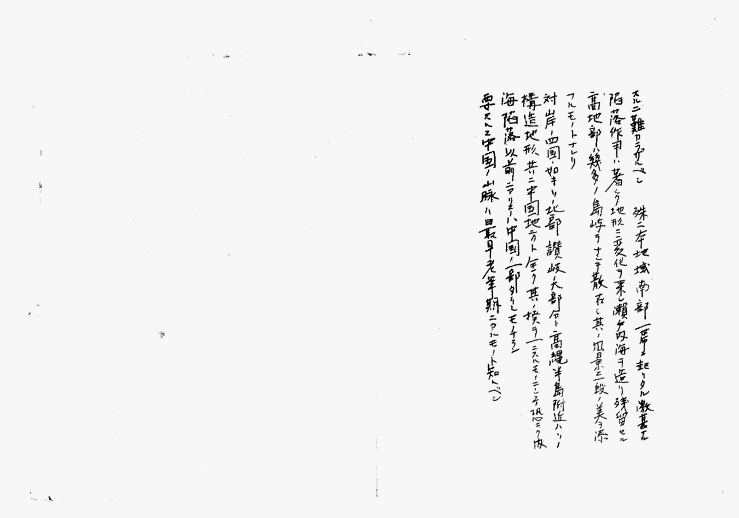 スルニ難カラザルベシ 殊ニ本地域南部一帯ニ起リタル激甚ナル
陥落作用ハ著シク地形ニ変化ヲ来シ瀬戸内海ヲ造リ残留セル
高地部ハ幾多ノ島嶼ヲナシテ散在シ其ノ風景ニ一段ノ美ヲ添
フルモノトナレリ
対岸ノ四国ノ如キソノ北部讃岐ノ大部分ト高縄半島附近ハソノ
構造地形共ニ中国地方ト全ク其ノ揆ヲ一ニスルモノニシテ恐ラク内
海陥落以前ニアリテハ中国ノ一部タリシモノナラン
要スルニ中国ノ山脈ハ最早老年期ニアルモノト知ルベシ